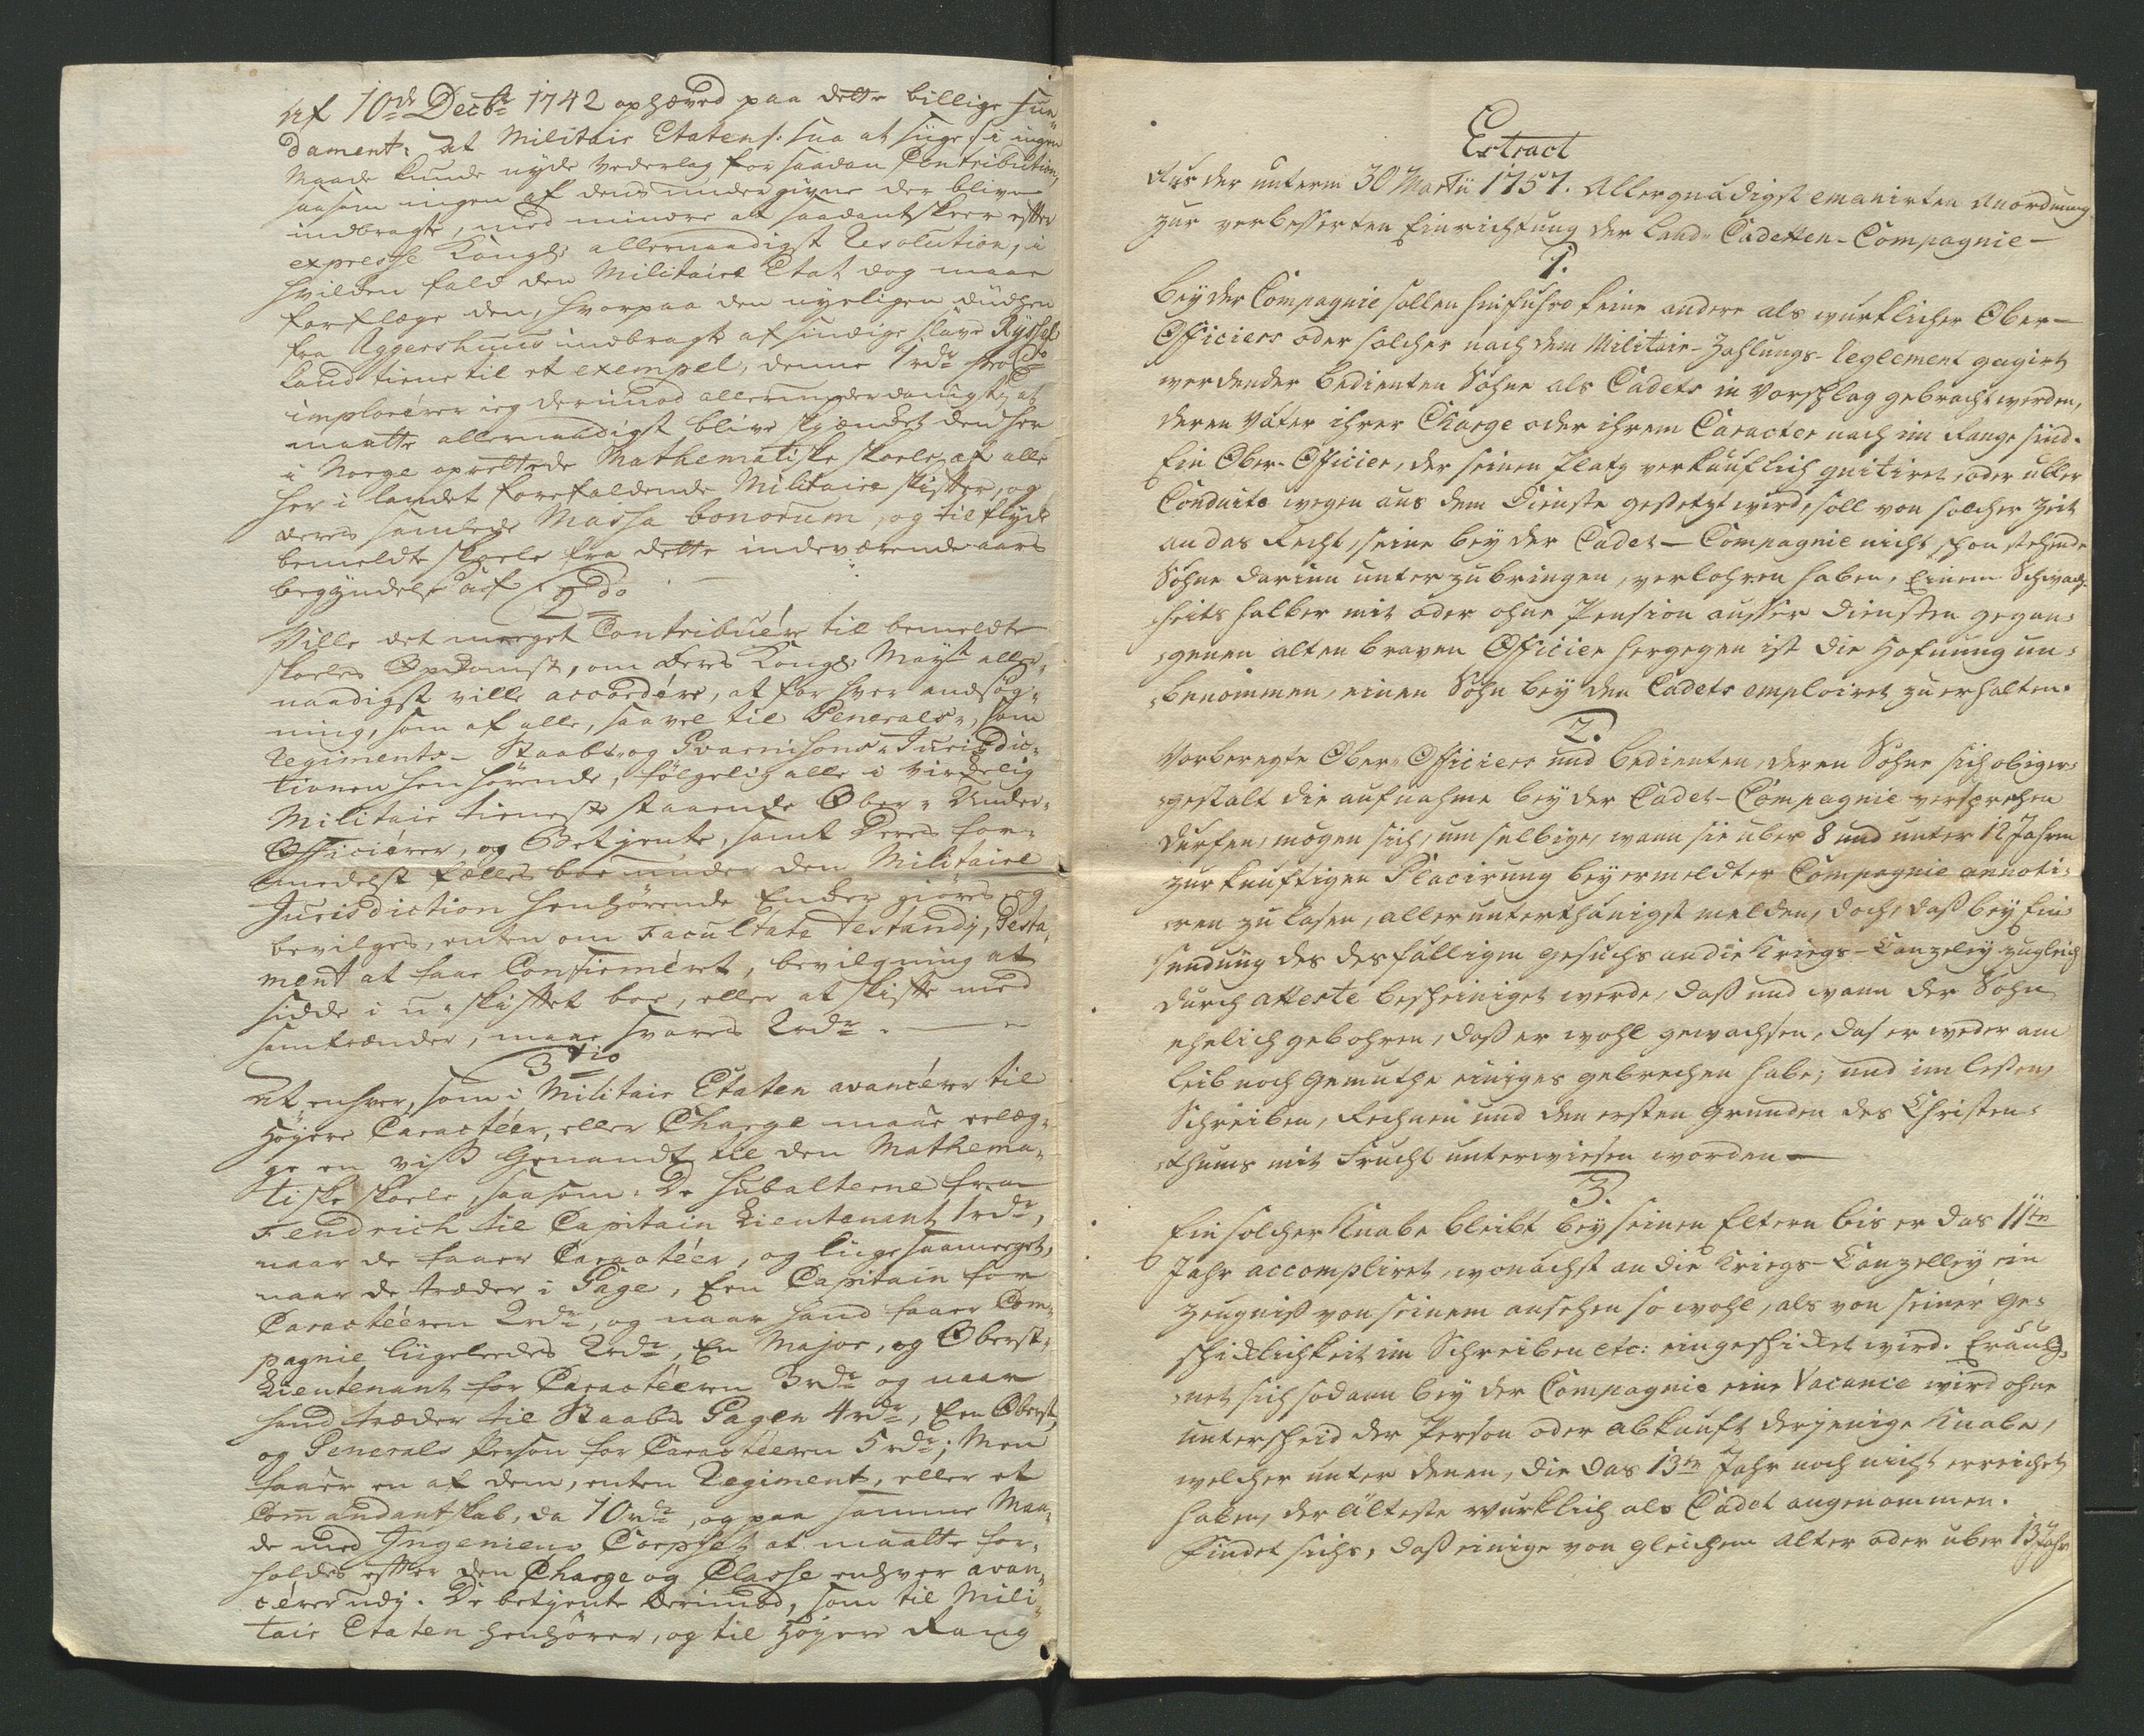 Af 10de Decbr 1742 ophæved paa dette billige fun-
dament: at Militair Etaten s: saa at siige :/ i ingen
Maade kunde nyde Vederlag for saadan Contribution,
saasom ingen af dens undergivne der blive
indbragte, med mindre at saadant skeer efter
expresse Kongl: allernaadigst Resolution, i
hvilken fald den Militaire Etat dog maae
forflege den, hvorpaa den nyeligen
fra Aggershuus indbragt afsindige slave Ryssel
kand tiene til et exempel, denne 1 rdr
imploérer ieg derimod allerunderdanigst, at
maatte allernaadigst blive skiænket den her
i Norge oprettede Mathematiske skoele, af alle
her i landet forefaldende Militaire skifter, og
deres samlede Massa bonorum, og tilflyde
bemeldte skoele fra dette indeværende aars
begyndelse af
2do
Ville det meeget Contribuére til bemeldte
skoeles Opkomst, om Deres Kongl: Mayst aller-
naadigst ville accordére, at for hver ansøg-
ning, som af alle, saavel til Generals-, som
Regiments- Staabs- og Guarnisons- Jurisdic-
tionen henhørende, følgelig alle i virkelig
Militair tieneste staaende Ober- Under-
Officiérer, og Betjente, samt Deres for-
medelst fælles boe under den Militaire
Jurisdiction henhørende Enker giøres, og
bevilges, enten om Facultate Testandj, Testa-
ment at faae Confirméret, bevilgning at
sidde i u-skiftet boe, eller at skifte med
samfrænder, maae svares 2 rdr.
3tio
At enhver, som i Militair Etaten avancérer til
høyere Caractéer, eller Charge maae erlæg-
ge en viss Genandt til den Mathema-
tiske skoele, saasom: De Subalterne fra
Fendrich til Capitain Lieutenant 1 rdr,
naar de faaer Caractéer, og liige saameeget,
naar de træder i Gage, Een Capitain for
Caractéeren 2 rdr, og naar hand faaer Com-
pagnie liigeledes 2 rdr, En Major, og Oberst-
Lieutenant for Caractéeren 3 rdr og naar
hand træder til Staabs Gagen 4 rdr, Een Oberst,
og Generals Person for Caractéeren 5 rdr; Men
faaer en af dem, enten Regiment, eller et
Commandantskab, da 10 rdr, og paa samme Maa-
de med Ingenieur Corpset at maatte for-
holdes efter den Charge og Classe enhver avan-
cérer udj. De betjente derimod, som til Mili-
tair Etaten henhører, og til høyere Rang
Extract
Aus der unterm 30 Martii 1757. Allergnädigst emanirten Anordnung
zur verbesserten Einrichtung der Land-Cadetten-Compagnie—
1.
Bey der Compagnie sollen hinfuhro keine andere als wurklicher Ober-
Officiers oder solcher nach dem Militair-Zahlungs-Reglement gagirt
werdender Bedienten Söhne als Cadets in Vorschlag gebracht werden,
deren Väter ihrer Charge oder ihrem Caracter nach im Range sind.
Ein Ober-Officier, der seinen Platz verkäuflich quitiret, oder übler
Conduite wegen aus dem Dienste gesetzt wird, soll von solcher Zeit
an das Recht, seine bey der Cadet-Compagnie nicht schon stehende
Söhne darinn unterzubringen, verlohren haben, Einem Schwach-
heits halber mit oder ohne Pension ausser Diensten gegan-
genen alten braven Officier hergegen ist die Hofnung un-
benommen, einen Sohn bey den Cadets emploiret zu erhalten.
2.
Vorberegte Ober-Officiers und Bedienten, deren Söhne sich obiger-
gestalt die aufnahme bey der Cadet-Compagnie versprechen
dürfen, mögen sich, um selbige, wann sie über 8 und unter 12 Jahren
zur künftigen Placirung bey ermeldter Compagnie annoti-
ren zu lasen, allerunterthänigst melden, doch, daß bey Ein-
sendung des desfälligen Gesuchs an die Kriegs-Canzeley zugleich
durch atteste bescheiniget werde, daß und wann der Sohn
ehelich gebohren, daß er wohl gewachsen, das er weder am
Leib noch Gemüthe einiges gebrechen habe; und im Lesen,
Schreiben, Rechnen und den ersten Gründen des Christen-
thums mit Frucht unterwiesen worden—
3.
Ein solcher Knabe bleibt bey seinen Eltern bis er das 11te
Jahr accompliret, wonächst an die Kriegs-Canzelley ein
Zeugniß von seinem ansehen so wohl, als von seiner Ge-
schicklichkeit im Schreiben etc: eingeschicket wird. Eräug-
net sich sodann bey der Compagnie eine Vacance wird ohne
unterscheid der Person oder Abkunft derjenige Knabe,
welcher unter denen, die das 13te Jahr noch nicht erreichet
haben, der älteste würklich als Cadet angenommen.
Findet sichs, daß einige von gleichem Alter oder über 13 Jahr